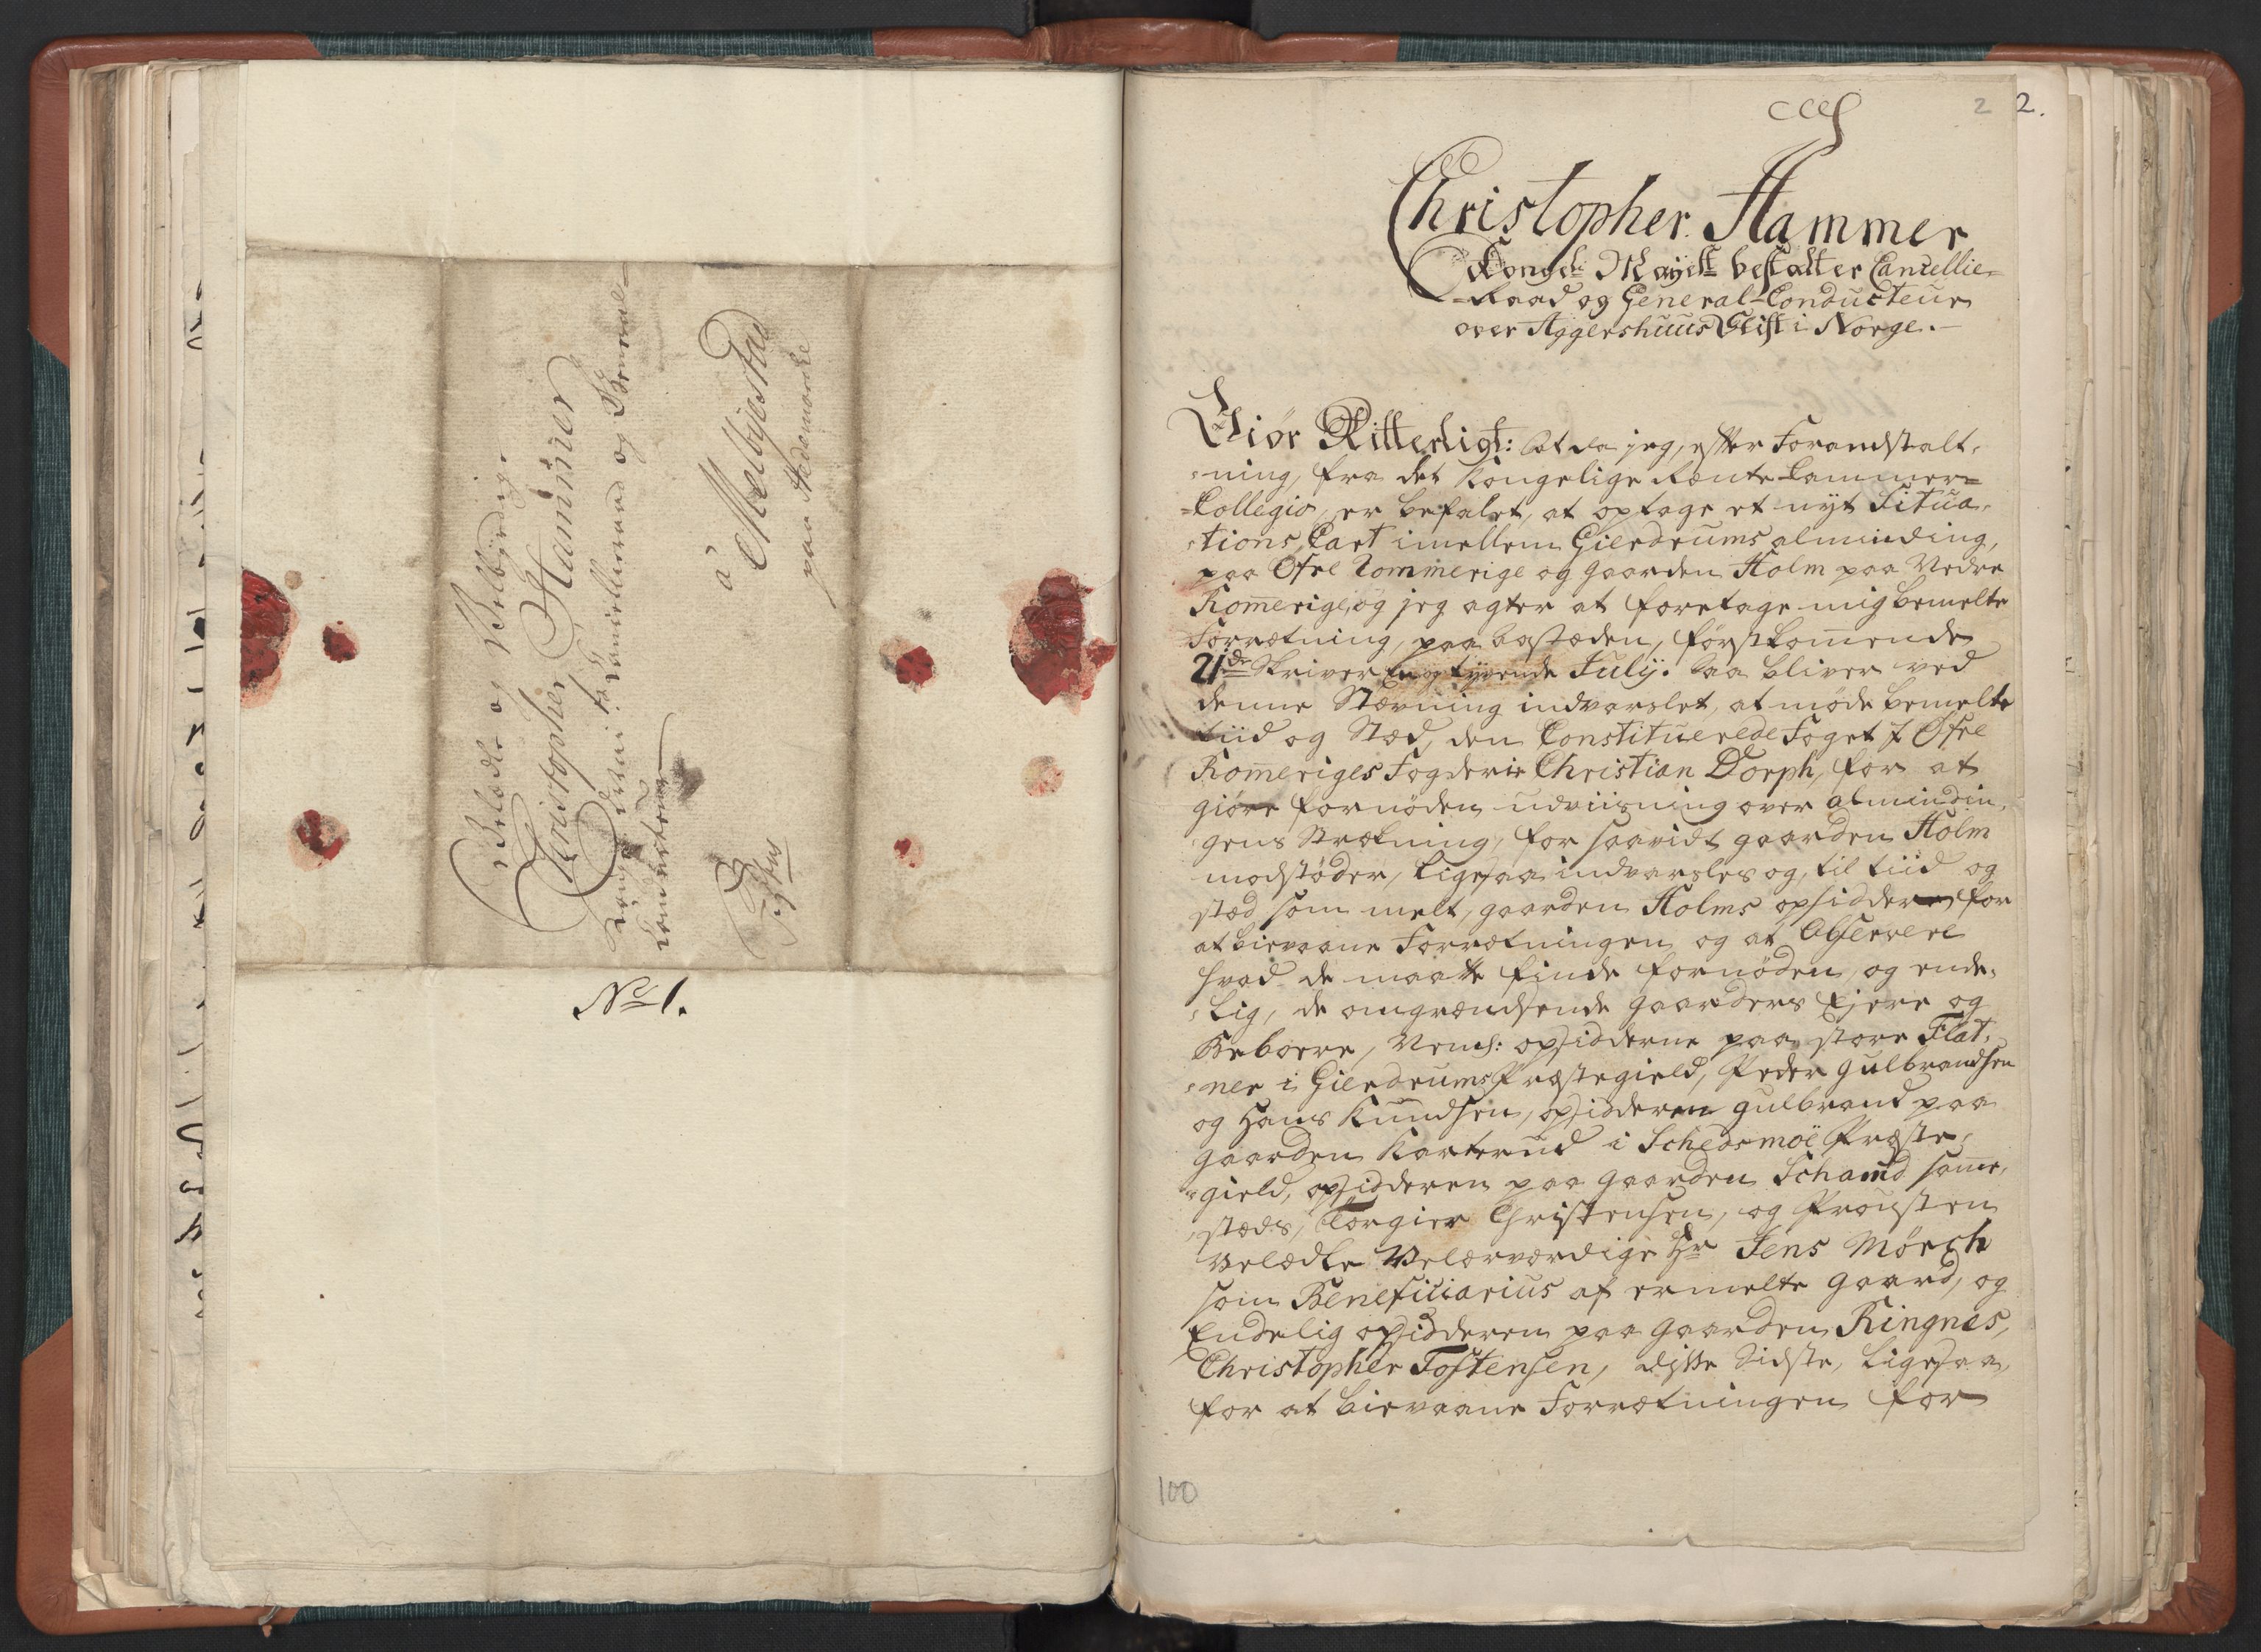 Velædle og Velbyrdige
Christopher Hammer
Kongl. Cancellieraad og General-
Conducteur
à Melbyestad
paa Hedemarke
No 1.
2 2.
Christopher Hammer
Kongel: Mayest: bestalter Cancellie-
-Raad og General-Conducteur
over Aggershuus Stift i Norge.
Giör Vitterligt: at da jeg, efter Foranstalt-
-ning, fra det Kongelige Rænte Cammer-
-Collegio, er befalet, at optage et nyt Situa-
-tions Cart imellem Gierdrums alminding,
paa Øfre Rommerige og gaarden Holm paa Nedre
Romerige, og jeg agter at foretage mig bemelte
Forrætning, paa aastæden, förstkomende
21de skriver Een og tyvende July: Saa bliver ved
denne Stævning indvarslet, at møde bemelte
tiid og Stæd, den Constituerede Foget i Øfre
Romeriges Fogderie Christian Dorph, for at
giøre fornøden udviisning over almindin-
gens Strækning, for saavidt gaarden Holm
modstøder, ligesaa indvarsles og, til tiid og
stæd som melt, gaarden Holms opsiddere for
at bievaane Forrætningen og at Observere
hvad de maatte finde fornøden, og ende-
-lig, de omgrændsende gaarders Ejere og
Beboere, Neml: opsidderne paa store Flat-
-ner i Gierdrums Præstegield, Peder Gulbrandsen
og Hans Knudsen, opsidderen Gulbrand paa
gaarden Karterud i Schedsmoe Præste-
-gield, opsidderen paa gaarden Schamd same-
-stæds, Torgier Christensen, og Provsten
Velædle Velærværdige Hr Jens Mørch
som Beneficiarius af ermelte gaard, og
Endelig opsidderen paa gaarden Ringnes,
Christopher Tostensen, disse Sidste, ligesaa,
for at bievaane Forrætningen for
100